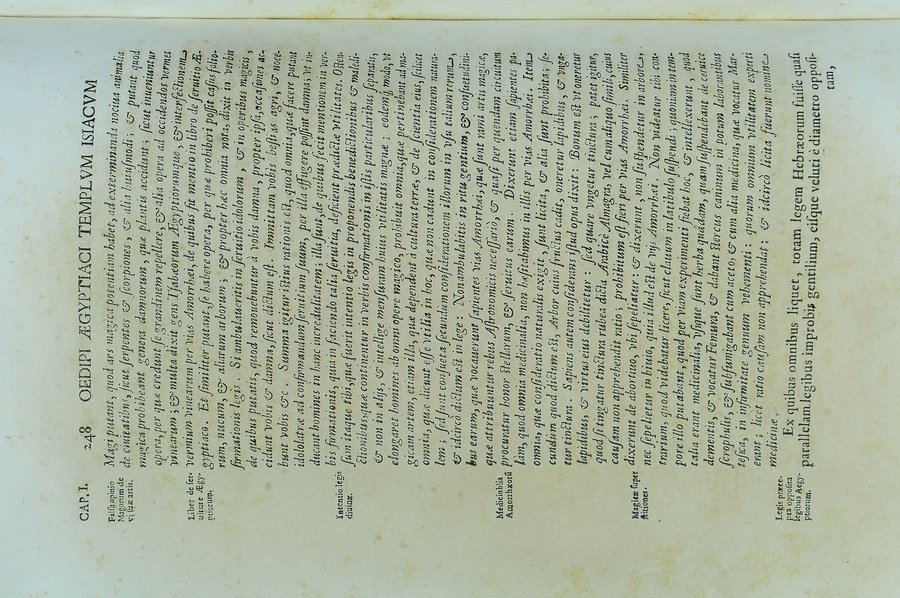 CAP. I. 248 OEDIPI ÆGYPTIACI TEMPLVM ISIACVM
Falsa opinio
Magorum de
vi suæ artis.
Magi putant, quod ars magica potentiam habeat, ad exterminanda nociua animalia
de ciuitatibus, sicut serpentes, & scorpiones, & alia huiusmodi; & putant quod
magica prohibeant genera damnorum, quæ plantis accidunt; sicut inueniuntur
opera, per quæ credunt se grandinem repellere, & alia opera ad occidendos vermes
vinearum; & multa dixit gens Tsabæorum Ægyptiorumque, & interfectionem
Liber de ser-
uitute Ægy-
ptiorum.
vermium vinearum per vias Amorrhæi, de quibus mentio in libro de seruitio Æ-
gyptiaco. Et similiter putant, se habere opera, per quæ prohiberi possit casus folio-
rum, nucum, & aliarum arborum; & propter hæc omnia nota, dixit in verbis
firmationis legis. Si ambulaueritis in seruitio idolorum, & in operibus magicis,
de quibus putatis, quod remouebuntur à vobis damna, propter ipsi, occasiones ac-
cident vobis & damna, sicut dictum est. Immittam vobis bestias agri, & noce-
bunt vobis &c. Summa igitur istius rationis est, quod omnia, quæ facere putant
idololatræ ad confirmandum seruitium suum, per illa effugere possint damna; vt in-
ducant homines in hanc incredulitatem; illa sunt, de quibus fecit mentionem in ver-
bis firmationis, quia in faciendo talia seruitia, deficient prædictæ vtilitates. Osten-
Intentio legis
diuinæ.
sum itaque tibi, quæ fuerit intentio legis in proponendis benedictionibus & maledi-
ctionibus, quæ continentur in verbis confirmationis in istis particularibus separatis,
& non in alijs, & intellige mensuram huius vtilitatis magnæ: eodem modo, vt
elongaret homines ab omni opere magico, prohibuit omnia, quæ pertinebant ad ma-
gicam artem, etiam illa, quæ dependent à cultura terræ, & de scientia eius, scilicet
omnia, quæ dicunt esse vtilia in hoc, quæ non cadunt in considerationem natura-
lem; sed sunt consueta secundum considerationem illorum in vsu talium rerum,
& idcirco dictum est in lege: Non ambulabitis in ritu gentium, & consuetudini-
bus earum, quæ vocauerunt sapientes vias Amorrhæi, quæ sunt rami artis magicæ,
quæ attribuuntur rebus Astronomicis necessariò, & quasi per quendam circuitum
procuratur honor stellarum, & seruitus earum. Dixerunt etiam sapientes pa-
Medicinalia
Amorrhæorū
lam, quod omnia medicinalia, non æstimamus in illis per vias Amorrhæi. Item,
omnia, quæ consideratio naturalis exigit, sunt licita, & alia sunt prohibita; se-
cundum quod dictum est, Arbor cuius fructus cadit, oneretur lapidibus, & vnga-
tur tinctura. Sapiens autem considerans istud opus dixit: Bonum est vt oneretur
lapidibus, & virtus eius debilitetur; sed quare vngetur tinctura; patet igitur,
quod si tingatur tinctura rubea dicta Arabicè Almagra, vel cum aliquo simili, cuius
causam non apprehendit ratio; prohibitum est fieri per vias Amorrhæi. Similiter
dixerunt de abortiuo, vbi sepeliatur; & dixerunt, non suspendetur in arbore,
Magicæ super
stitiones.
nec sepelietur in biuio, quia illud est de vijs Amorrhæi. Non videatur tibi con-
trarium, quod videbitur licere, sicut de clauo eius in laribulo suspendi; quoniam in tem-
pore illo putabant, quod per viam experimenti fiebat hoc, & intellexerunt quod
talia erant medicinalia, vsque sunt herba quædam, quam suspendebant de ceruice
dementis, & vocatur Fœmina, & dabant stercus caninum in potum laborantibus
scrophulis, & suffumigabant cum aceto, & cum alia medicina, quæ vocatur Mar-
tesica, in infirmitate genuum vehementi: quorum omnium vtilitatem experti
erant; licet ratio causam non apprehendat; & idcircò licita fuerunt nomine
medicinæ.
Legis præce-
pta opposita
legibus Ægy-
ptiorum.
Ex quibus omnibus liquet, totam legem Hebræorum fuisse quasi
parallelam legibus improbis gentilium, eisque veluti è diametro opposi-
tam,